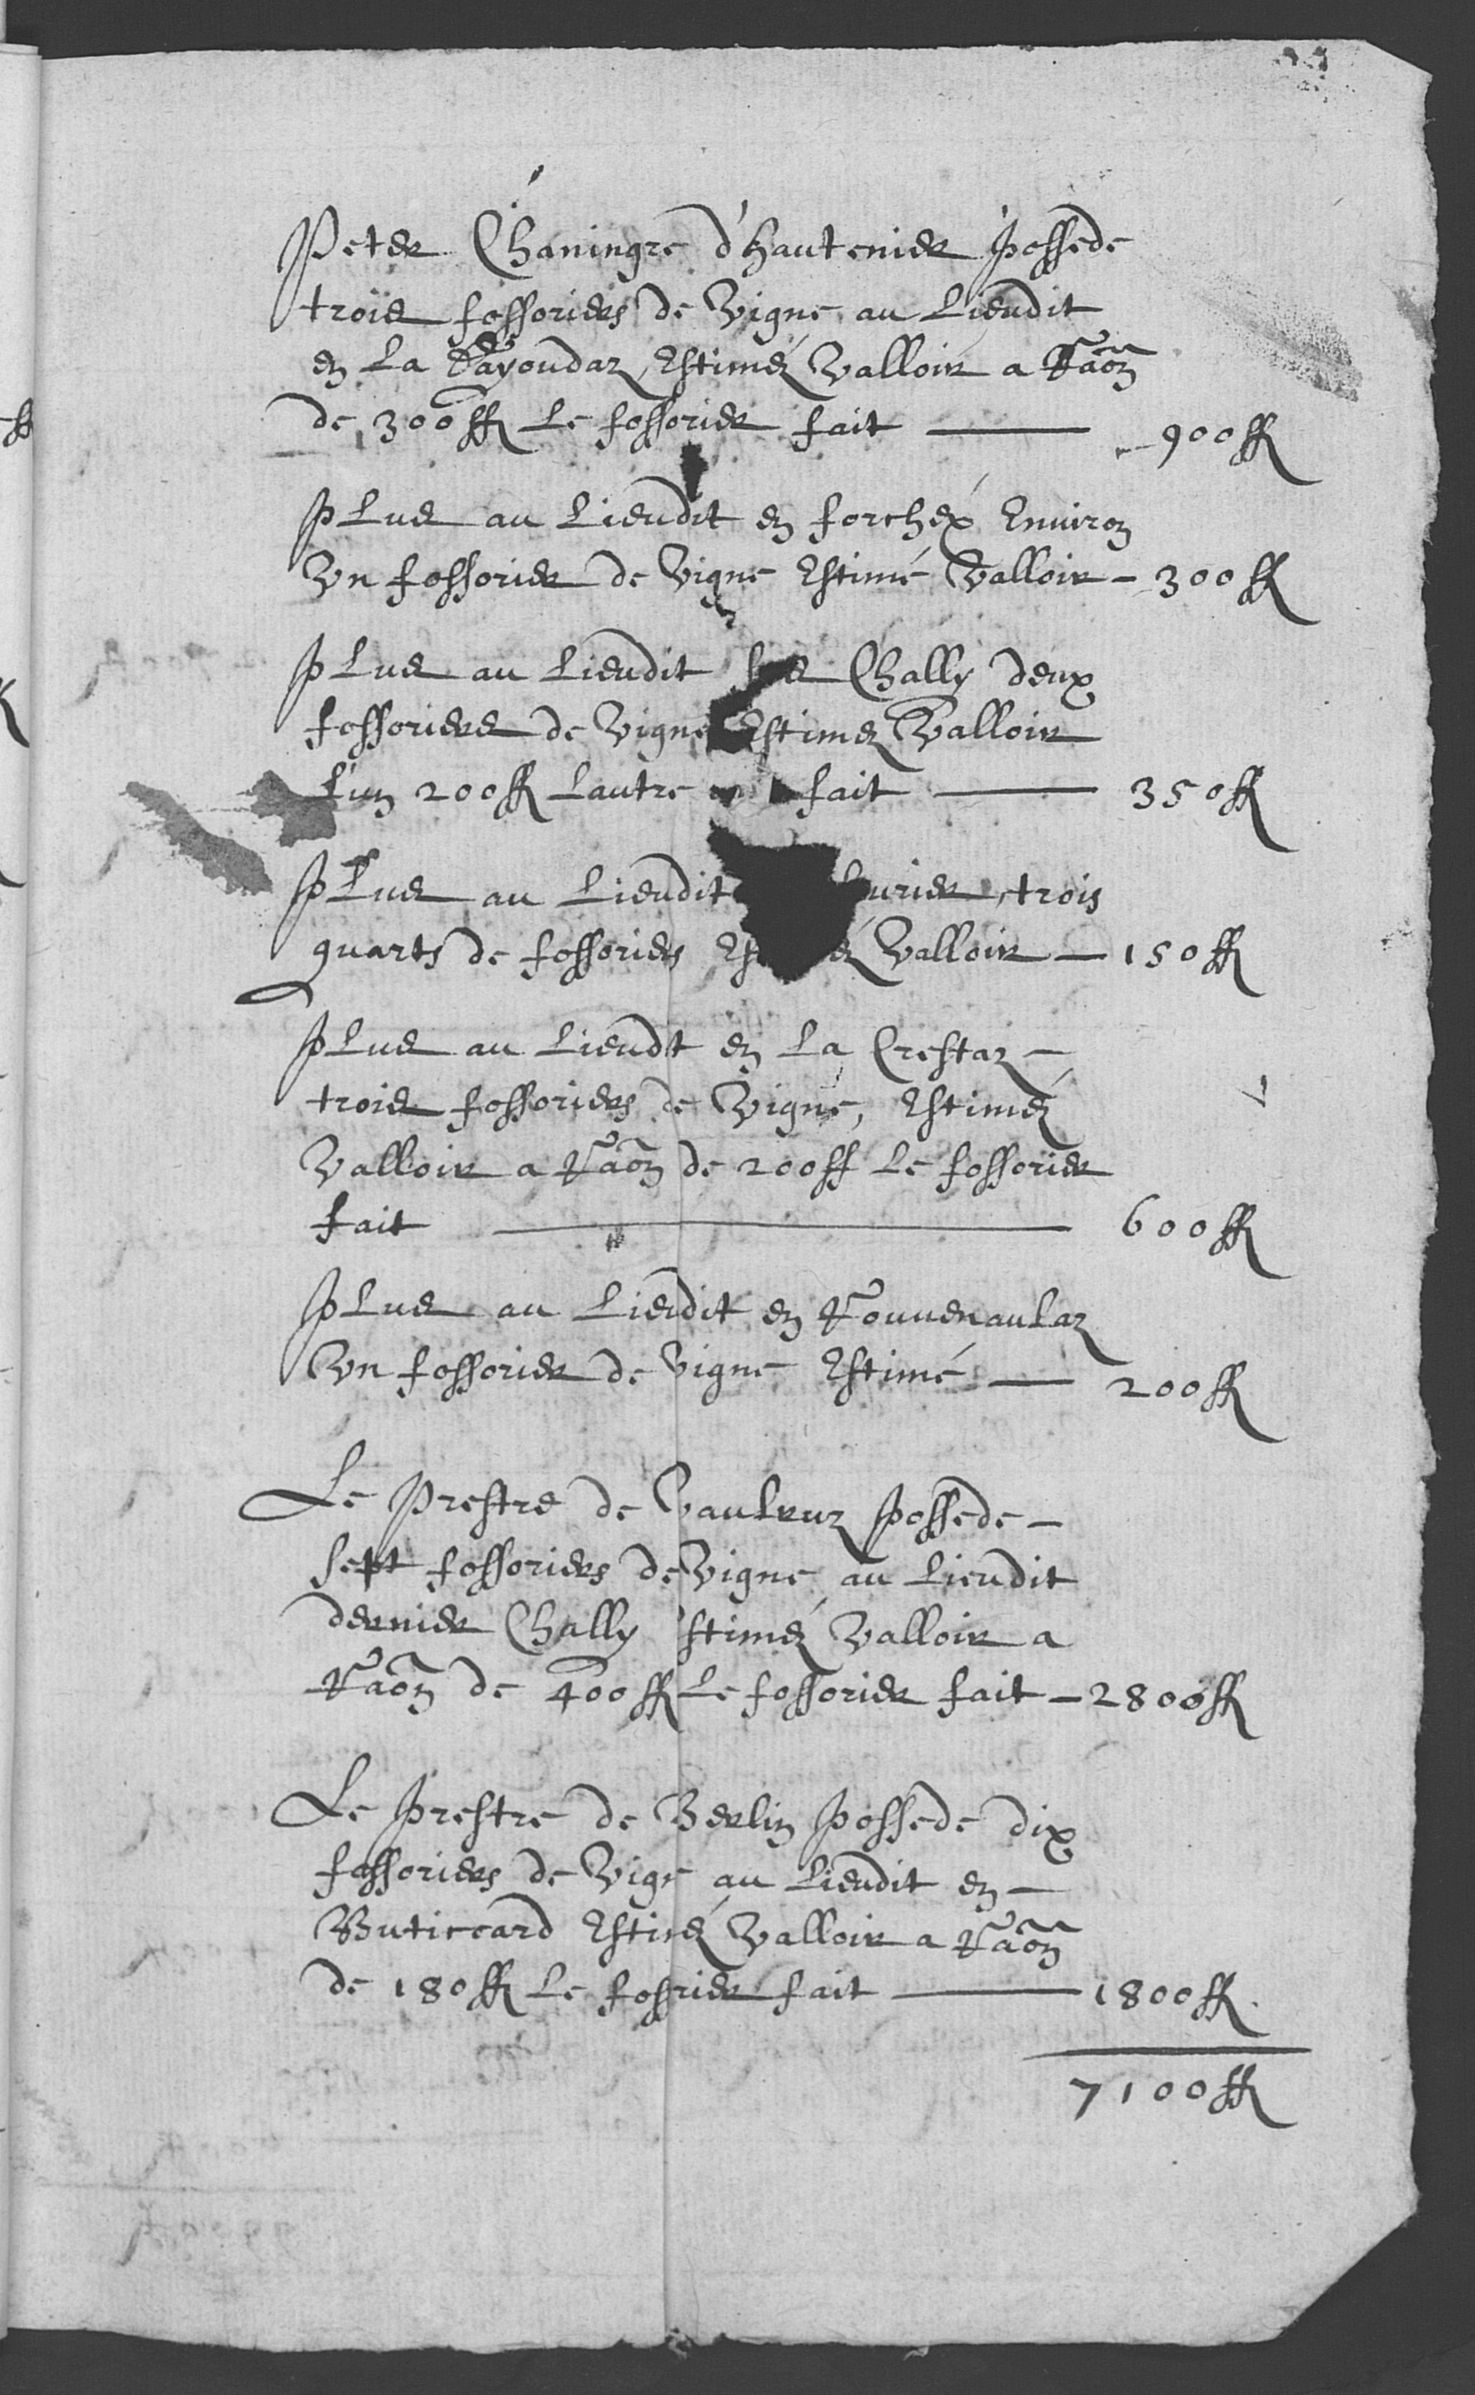 Peter Chaningre d'hautenier possede
trois fossoriers de Vigne au Lieudit
en La Rayoudaz, Estimez Valloir a Raõn
de 300 ff Le fossorier fait — 900 ff
Plus au Lieudit en forchex Environ
Un fossorier de Vigne Estimé Valloir — 300 ff
Plus au Lieudit Chally deux
fossoriers de Vigne Estimez Valloir
L'un 200 ff Lautre fait — 350 ff
Plus au Lieudit urier, trois
quarts de fossoriers Es ez Valloir — 150 ff
Plus au Lieudt en La Crestaz —
trois fossoriers de Vigne, Estimez
Valloir a Raõn de 200 ff Le fossorier
fait — 600 ff
Plus au Lieudit en Rouvenaulaz
Un fossorier de Vigne Estimé — 200 ff
Le Prestre de Vaulruz possede —
sept fossoriers de Vigne au Lieudit
dernier Chally stimez Valloir a
Raõn de 400 ff Le fossorier fait — 2800 ff
Le prestre de Berlin possede dix
fossoriers de Vige au Lieudit en —
Buticcard Estimez Valloir a Raõn
de 180 ff Le fossrier fait — 1800 ff.
7100 ff